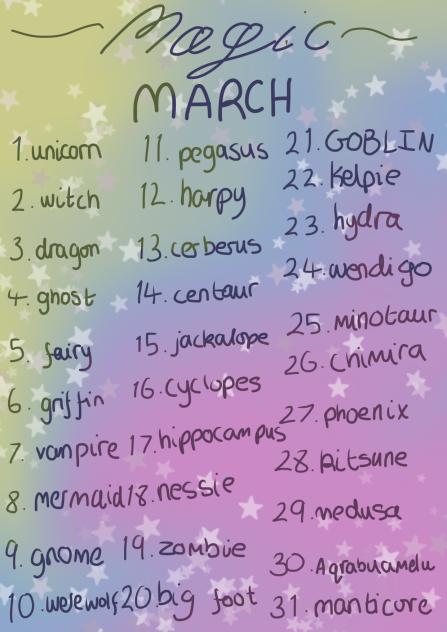 Magic
MARCH
1. unicorn
2. witch
3. dragon
4. ghost
5. fairy
6. griffin
7. vampire
8. mermaid
9. gnome
10. werewolf
11. pegasus
12. harpy
13. cerberus
14. centaur
15. jackalope
16. cyclopes
17. hippocampus
18. nessie
19. zombie
20 big foot
21. GOBLIN
22. kelpie
23. hydra
24. wendigo
25. minotaur
26. chimira
27. phoenix
28. kitsune
29. medusa
30. Aqrabuamelu
31. manticore